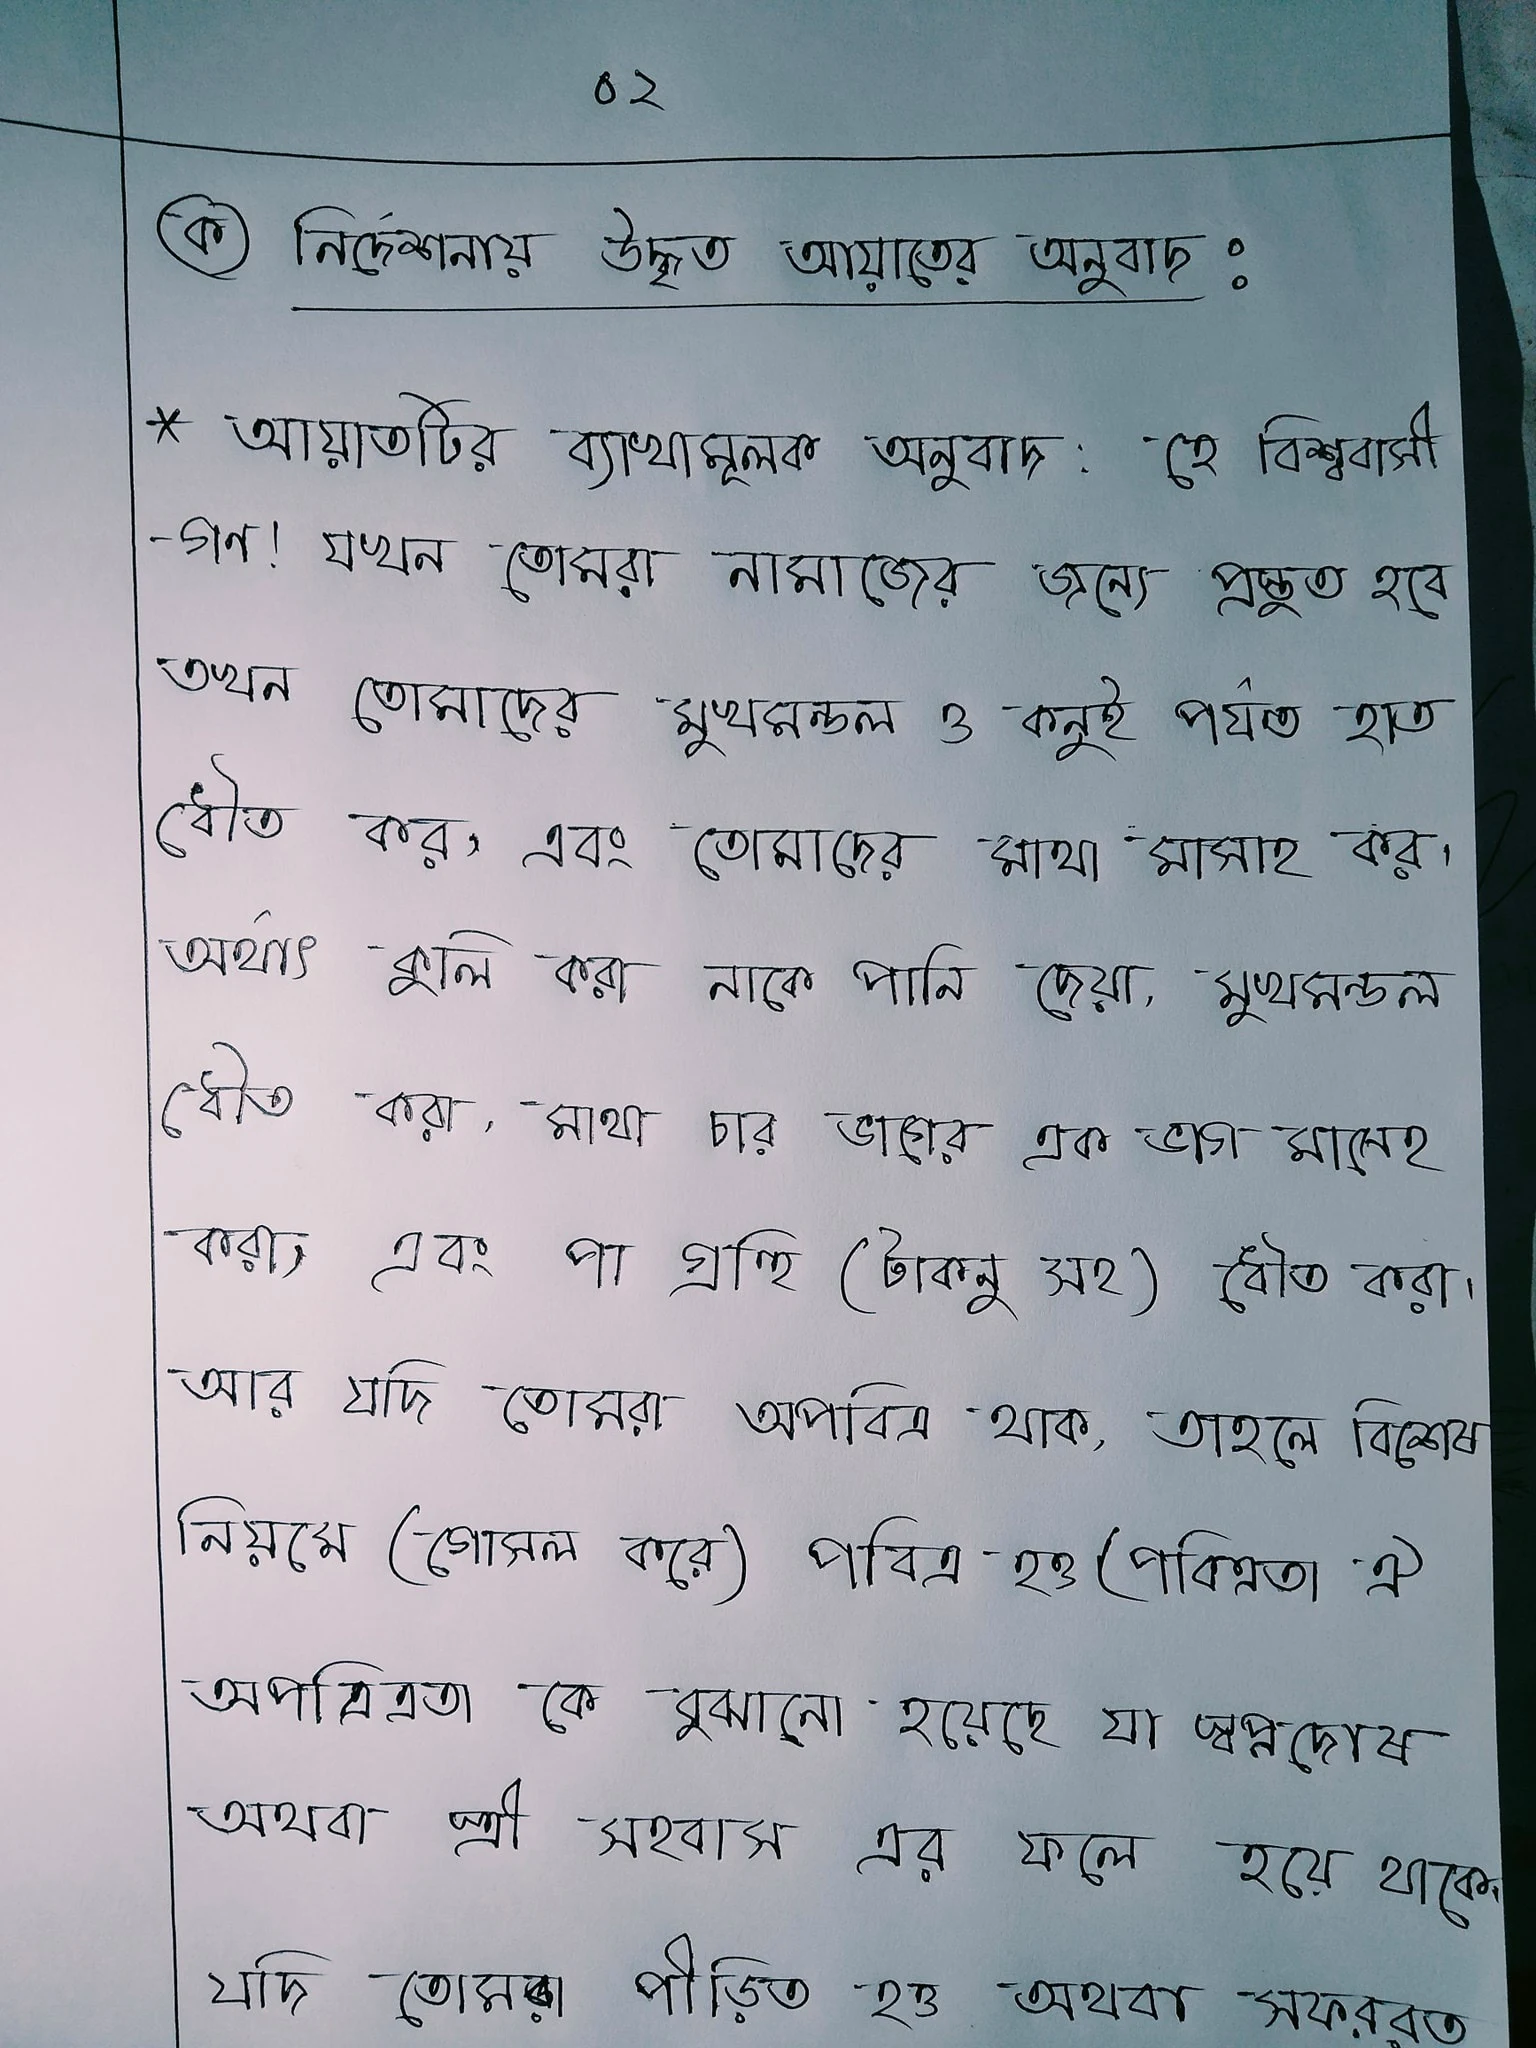 ০২
ক নির্দেশনায় উদ্ধৃত আয়াতের অনুবাদ :
* আয়াতটির ব্যাখামূলক অনুবাদ : হে বিশ্ববাসী
-গন! যখন তোমরা নামাজের জন্যে প্রস্তুত হবে
তখন তোমাদের মুখমন্ডল ও কনুই পর্যত হাত
ধৌত কর, এবং তোমাদের মাথা মাসাহ কর।
অর্থাৎ কুলি করা নাকে পানি দেয়া, মুখমন্ডল
ধৌত করা, মাথা চার ভাগের এক ভাগ মাসেহ
করা, এবং পা গ্রন্থি (টাকনু সহ) ধৌত করা।
আর যদি তোমরা অপবিত্র থাক, তাহলে বিশেষ
নিয়মে (গোসল করে) পবিত্র হও (পবিত্রতা ঐ
অপবিত্রতা কে বুঝানো হয়েছে যা স্বপ্নদোষ
অথবা স্ত্রী সহবাস এর ফলে হয়ে থাকে,
যদি তোমরা পীড়িত হও অথবা সফররত